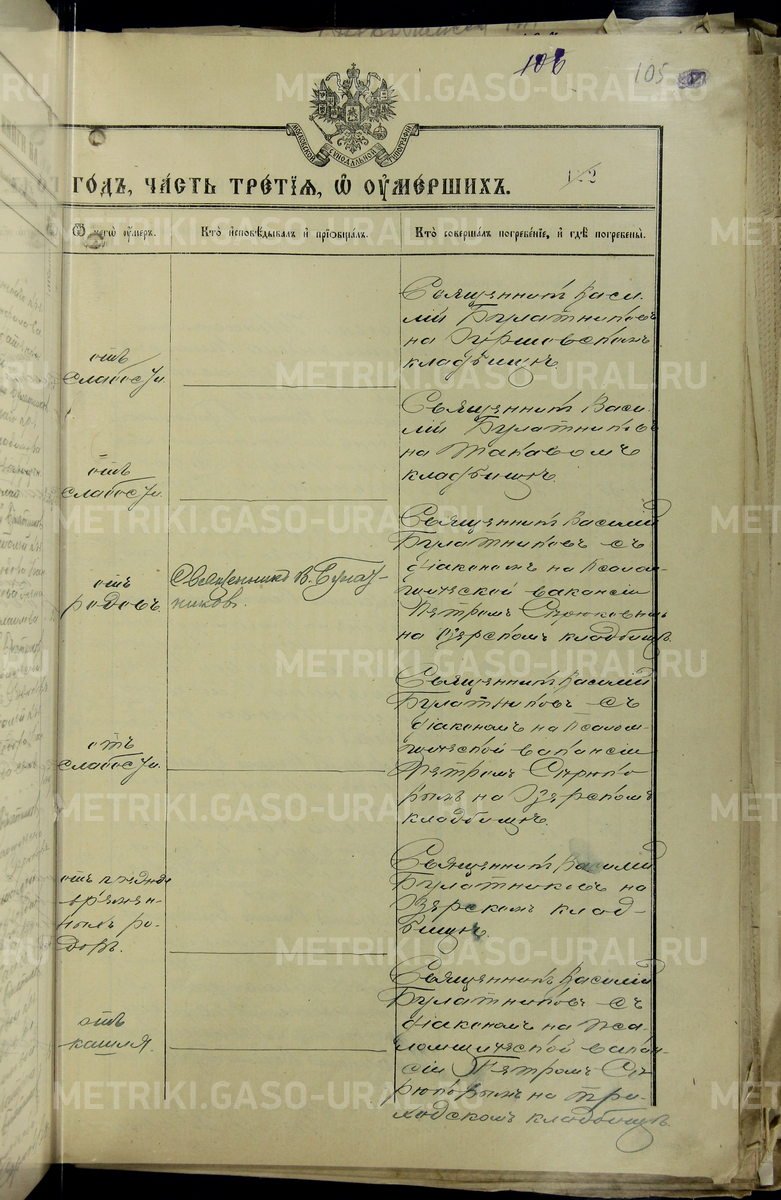 106
105
МОСКОВСКОЙ СѴНОДАЛЬНОЙ ТИПОГРАФІИ
го́дъ, ча́сть тре́тїѧ, ѡ҆ ᲂу҆ме́ршихъ.
Ѿ чегѡ̀ ᲂу҆́меръ.
Кто̀ и҆сповѣ́дывалъ и҆ прїѡбща́лъ.
Кто̀ соверша́лъ погребе́нїе, и҆ гдѣ̀ погребены̀.
отъ
слабости.
Священникъ Васи-
лій Булатниковъ
на
кладбищѣ.
отъ
слабости.
Священникъ Васи-
лій Булатниковъ
на
кладбищѣ.
отъ
родовъ
Священникъ В. Булат-
никовъ.
Священникъ Василій
Булатниковъ съ
діакономъ на псалом-
щической вакансіи
Петромъ
на Озерскомъ кладбищѣ.
отъ
слабости.
Священникъ Василій
Булатниковъ съ
діакономъ на псалом-
щической вакансіи
Петромъ Сѣрюко-
вымъ на Озерскомъ
кладбищѣ.
отъ
времен-
ныхъ ро-
довъ.
Священникъ Василій
Булатниковъ на
Озерскомъ клад-
бищѣ.
отъ
кашля.
Священникъ Василій
Булатниковъ съ
діакономъ на пса-
ломщической вакан-
сіи Петромъ Сѣ-
рюковымъ на при-
ходскомъ кладбищѣ.
METRIKI.GASO-URAL.RU